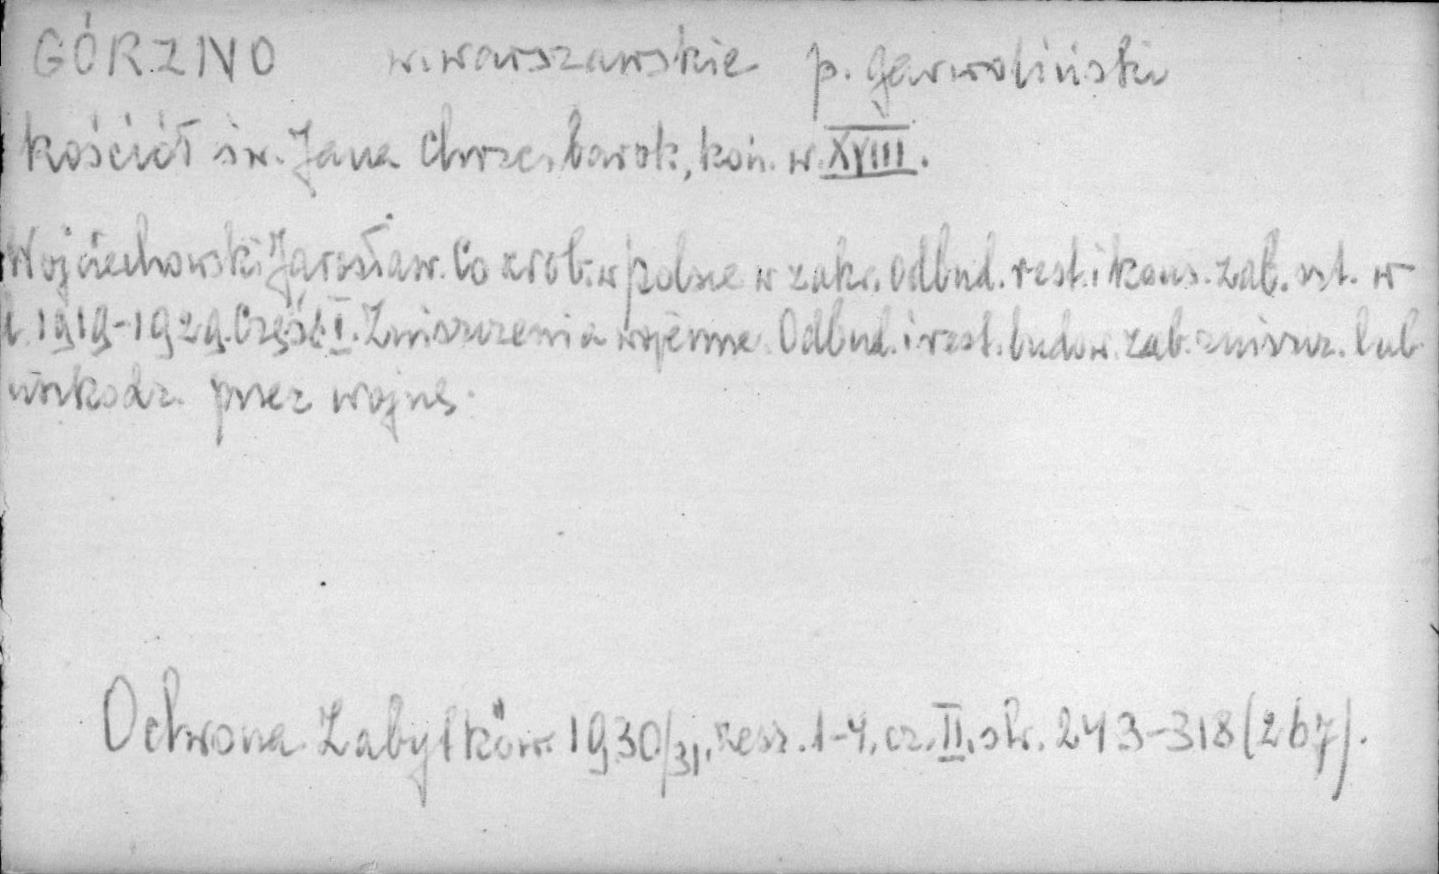 GÓRZNO w. warszawskie p. garwoliński
kościół św. Jana Chrzc. barok, koń. w. XVIII.
Wojciechowski Jarosław. Co zrob. w Polsce w zakr. odbud. rest. i kons. zab. szt. w
l. 1919-1929. Część I. Zniszczenia wojenne. Odbud. i rest. budow. zab. zniszcz. lub
uszkodz. przez wojnę.
Ochrona Zabytków. 1930/31, zesz. 1-4, cz. II, str. 243-318 (267).